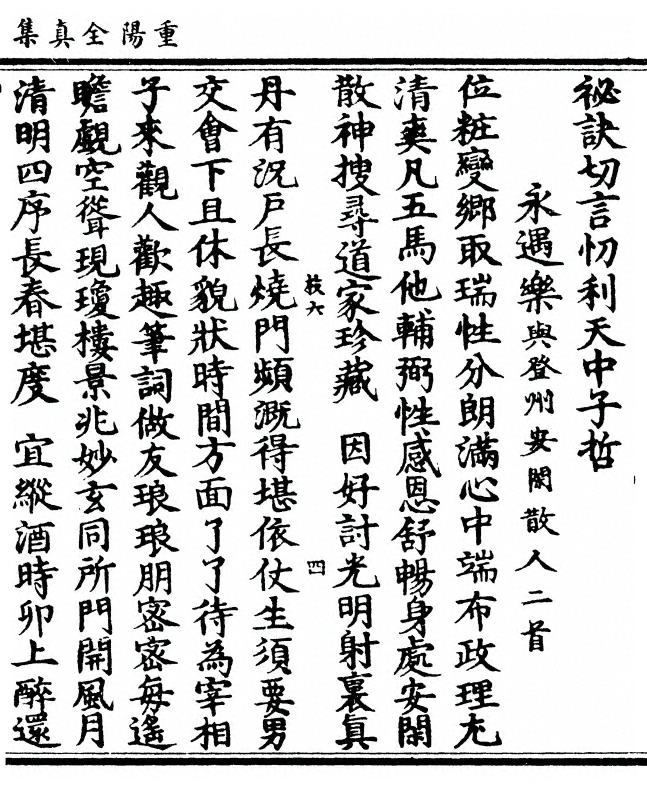 重陽全真集
祕訣切言忉利天中子哲
永遇樂與登州安閑散人二首
位粧變鄉取瑞性分朗滿心中端布政理尤
清爽凡五馬他輔弼性感恩舒暢身處安閑
散神搜尋道家珍藏 因好討光明射裏真
枝六
四
丹有況戶長燒門頻溉得堪依仗生須要男
交會下且休貌狀時間方面了了待為宰相
子來觀人歡趣筆詞做友琅琅朋密密每遙
瞻覷空聳現瓊樓景兆妙玄同所門開風月
清明四序長春堪度 宜縱酒時卯上醉還